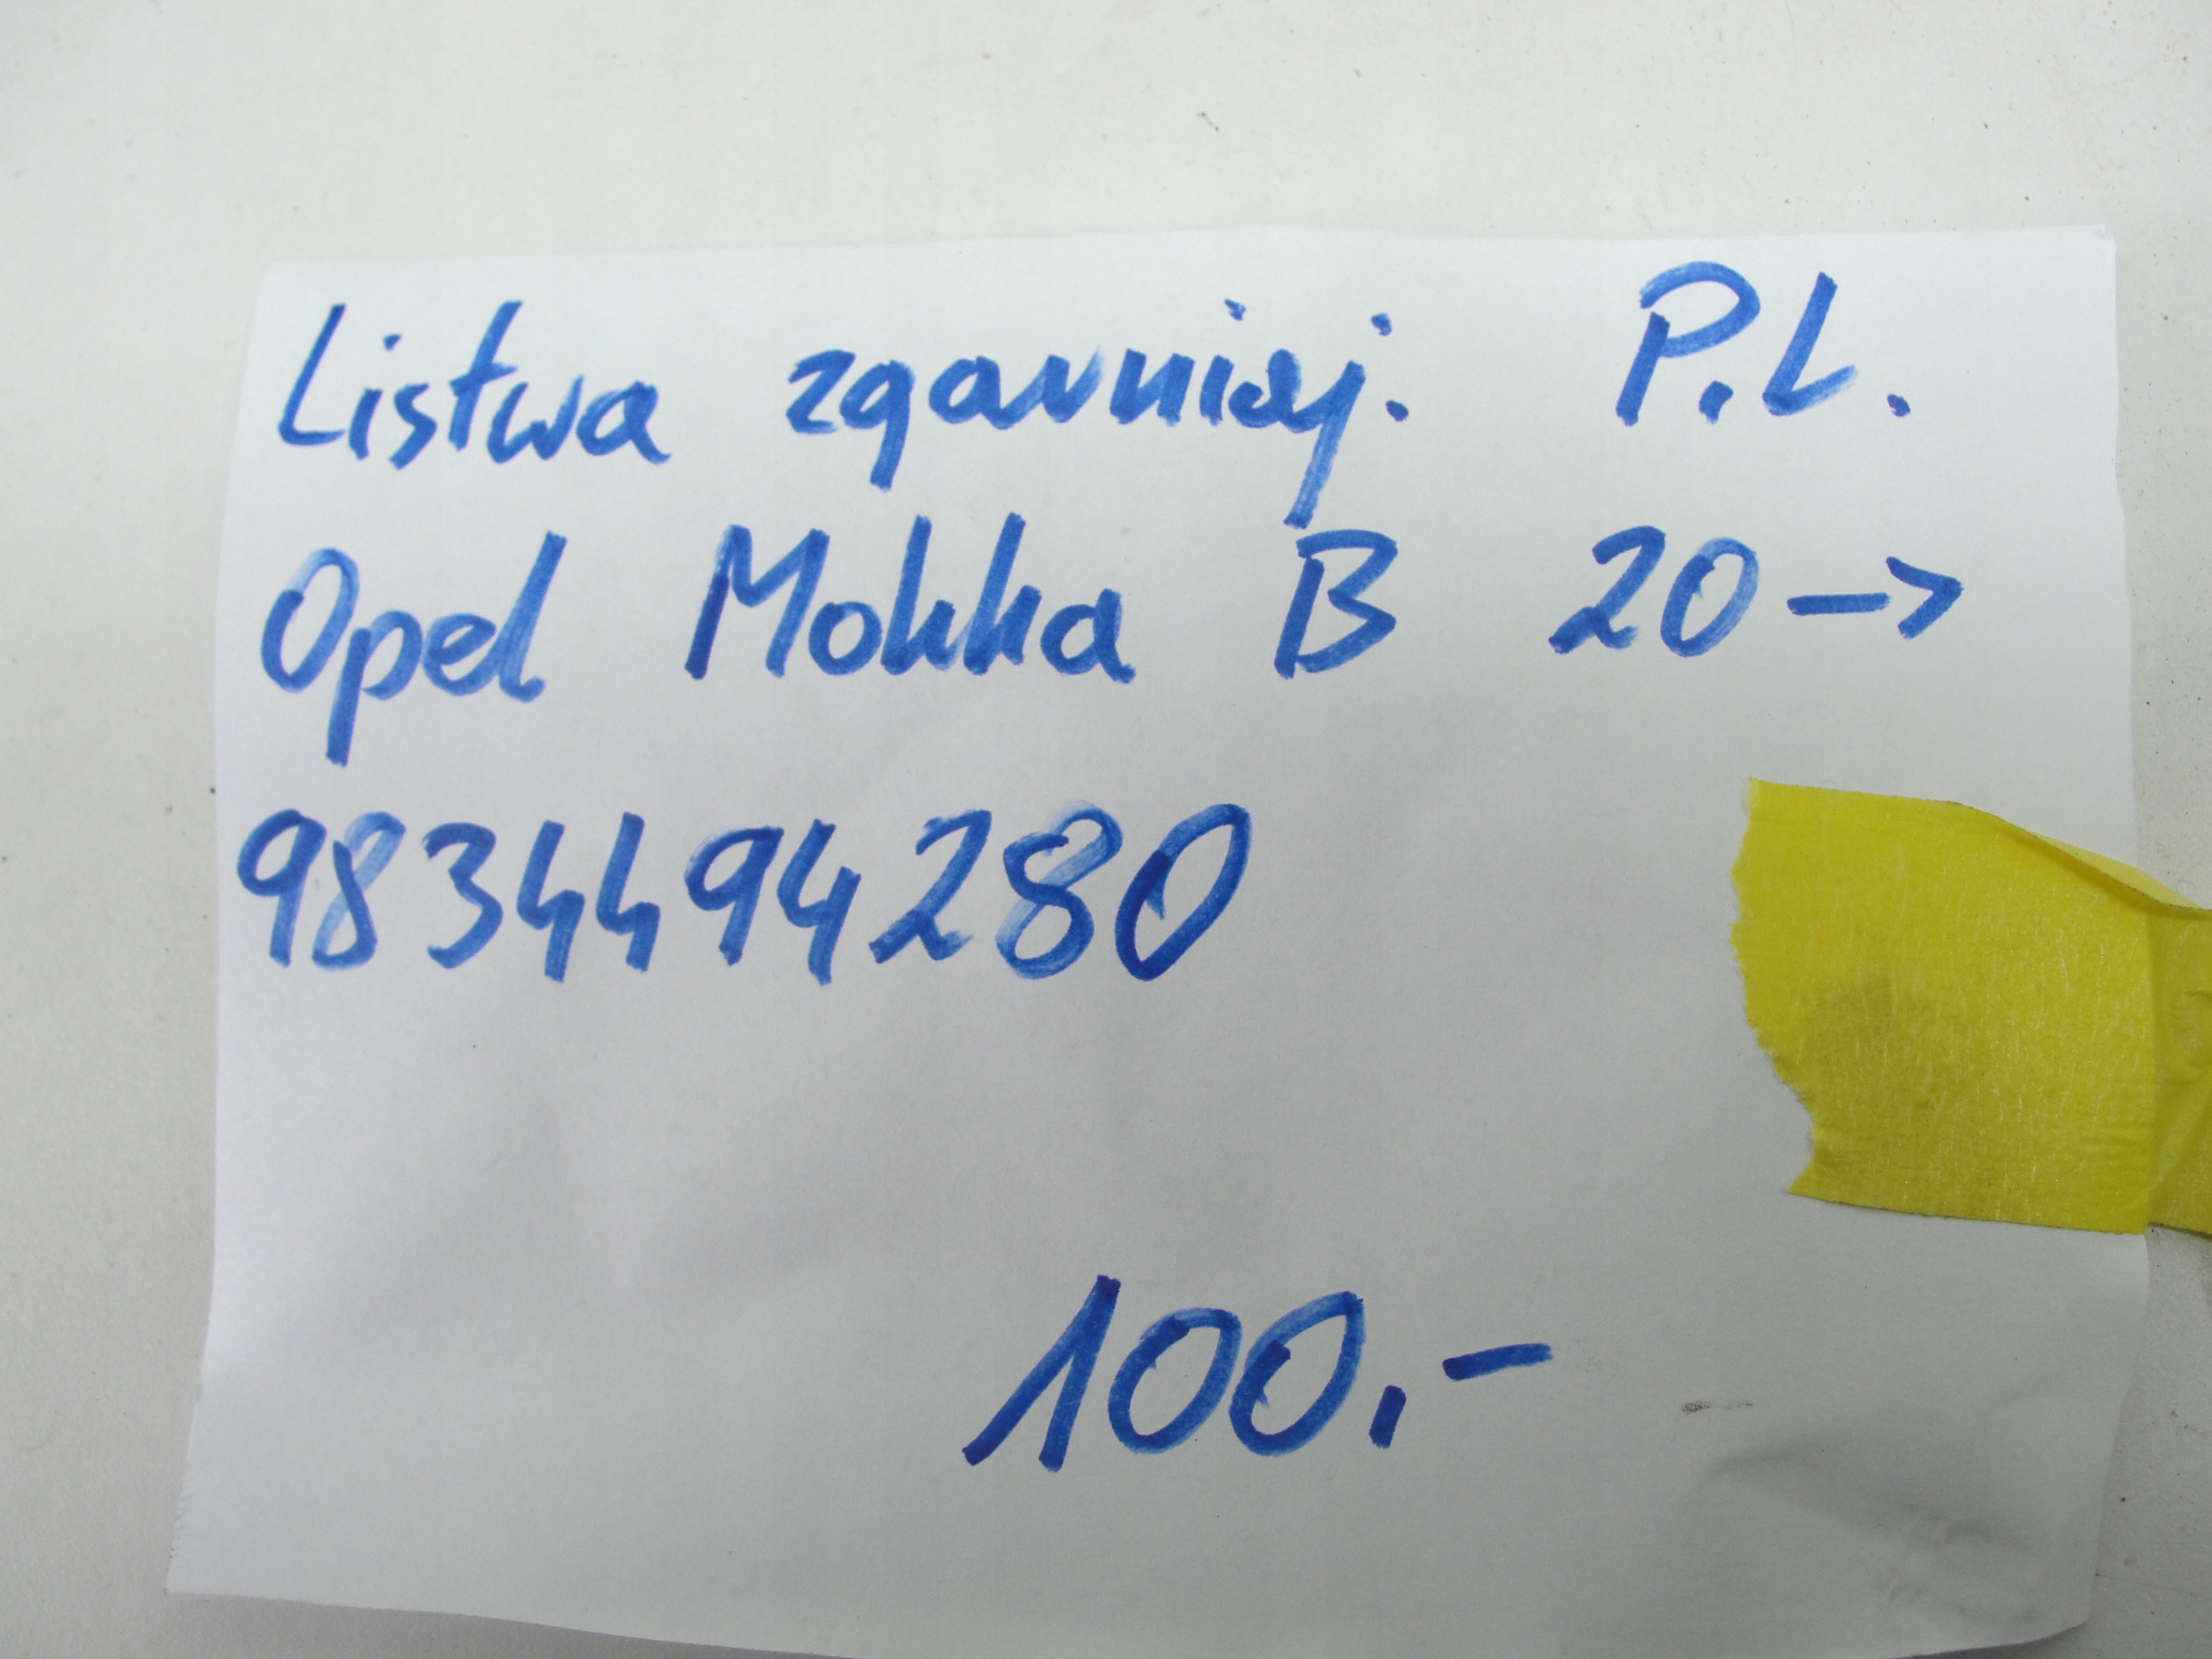 Listwa zgarniaj. P.L.
Opel Mokka B 20->
9834494280
100.-